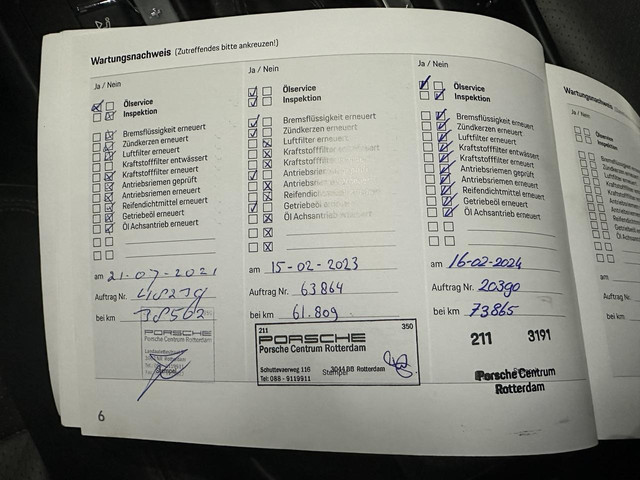 Wartungsnachweis (Zutreffendes bitte ankreuzen!)
Ja / Nein
Ölservice
Inspektion
Bremsflüssigkeit erneuert
Zündkerzen erneuert
Luftfilter erneuert
Kraftstofffilter entwässert
Kraftstofffilter erneuert
Antriebsriemen geprüft
Antriebsriemen erneuert
Reifendichtmittel erneuert
Getriebeöl erneuert
Öl Achsantrieb erneuert
am 21-07-2021
Auftrag Nr.
bei km 38502
PORSCHE
Porsche Centrum Rotterdam
Stempel
Ja / Nein
Ölservice
Inspektion
Bremsflüssigkeit erneuert
Zündkerzen erneuert
Luftfilter erneuert
Kraftstofffilter
Kraftstofffilter
Antriebsriemen
Antriebsriemen
Reifendichtmittel erneuert
Getriebeöl erneuert
Öl Achsantrieb erneuert
am 15-02-2023
Auftrag Nr. 63864
bei km 61.809
211 350
PORSCHE
Porsche Centrum Rotterdam
Schuttevaerweg 116 3044 BB Rotterdam
Stempel
Tel: 088 - 9119911
Ja / Nein
Ölservice
Inspektion
Bremsflüssigkeit erneuert
Zündkerzen erneuert
Luftfilter erneuert
Kraftstofffilter entwässert
Kraftstofffilter erneuert
Antriebsriemen geprüft
Antriebsriemen erneuert
Reifendichtmittel erneuert
Getriebeöl erneuert
Öl Achsantrieb erneuert
am 16-02-2024
Auftrag Nr. 20390
bei km 73865
211 3191
Porsche Centrum
Rotterdam
6
Wartungsnachweis
Ja / Nein
Ölservice
Inspektion